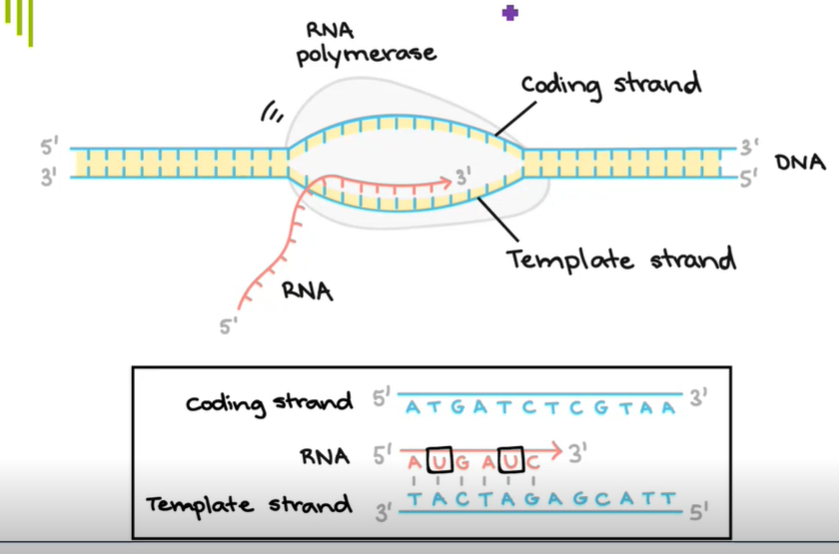 RNA
polymerase
Coding strand
5' 3'
DNA
3' 3' 5'
Template strand
RNA
5'
Coding strand 5' A T G A T C T C G T A A 3'
RNA 5' A U G A U C 3'
Template strand 3' T A C T A G A G C A T T 5'